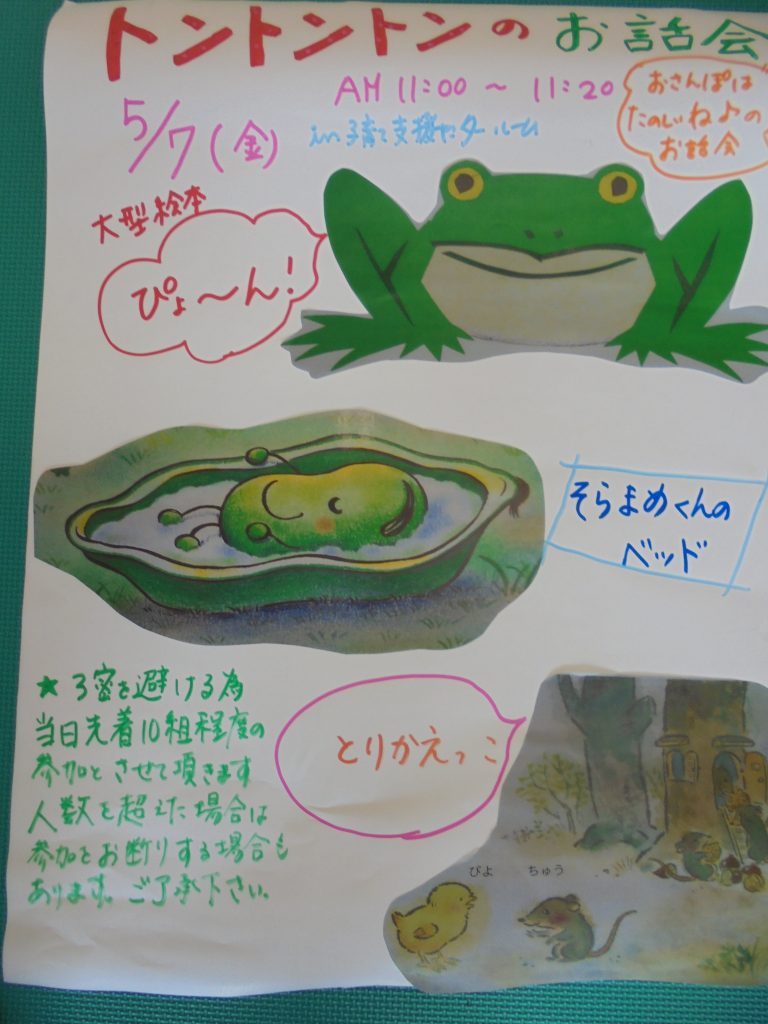 トントントンのお話会
AM 11:00 ~ 11:20
おさんぽは
たのしいね♪の
お話会
5/7(金)
in 子育て支援センタールーム
大型絵本
ぴょ〜ん!
そらまめくんの
ベッド
★3密を避ける為
当日先着10組程度の
参加とさせて頂きます
人数を超えた場合は
参加をお断りする場合も
あります。ご了承下さい。
とりかえっこ
ぴよ ちゅう